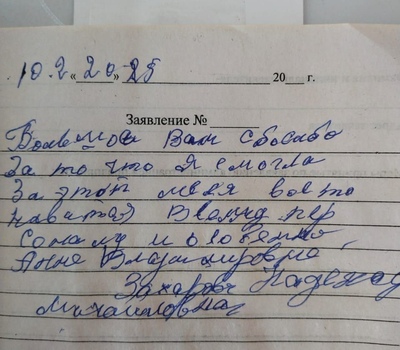 10.2 «20» 25 20__ г.
Заявление №
Большое Вам сбосибо
За то что я смогла
За этот меся восто
новится Всему пер
соналу и особенно
Анне Владимировне,
Захарова Надежда
Михайловна